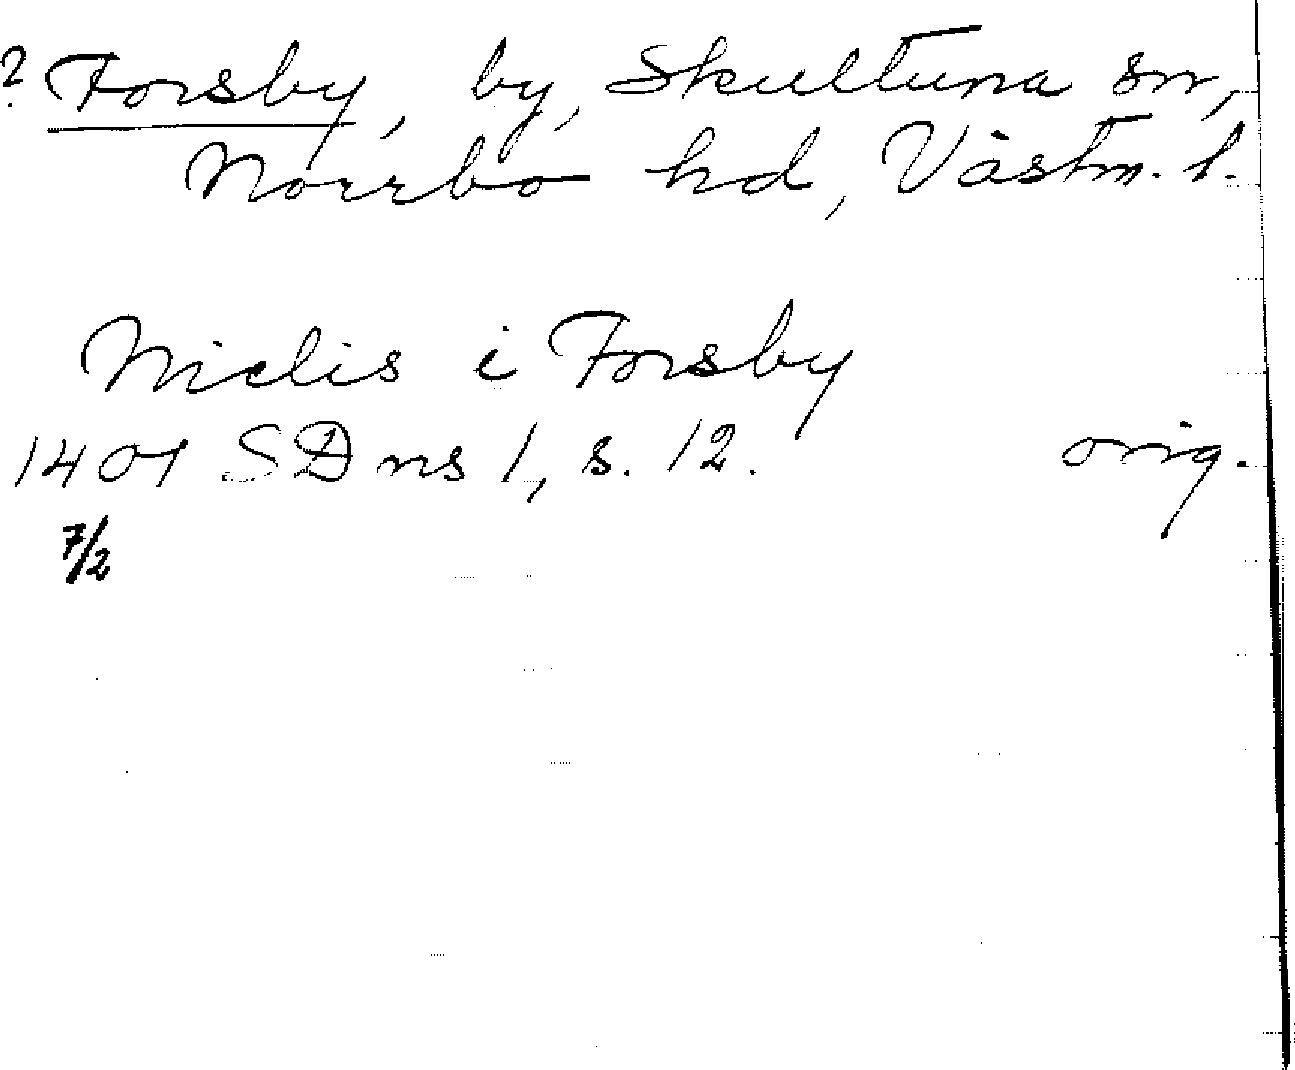 ? Forsby, by, Skultuna sn,
Norrbo hd, Västm. l.
Niclis i Forsby
1401 SD ns 1, s. 12. orig.
7/2